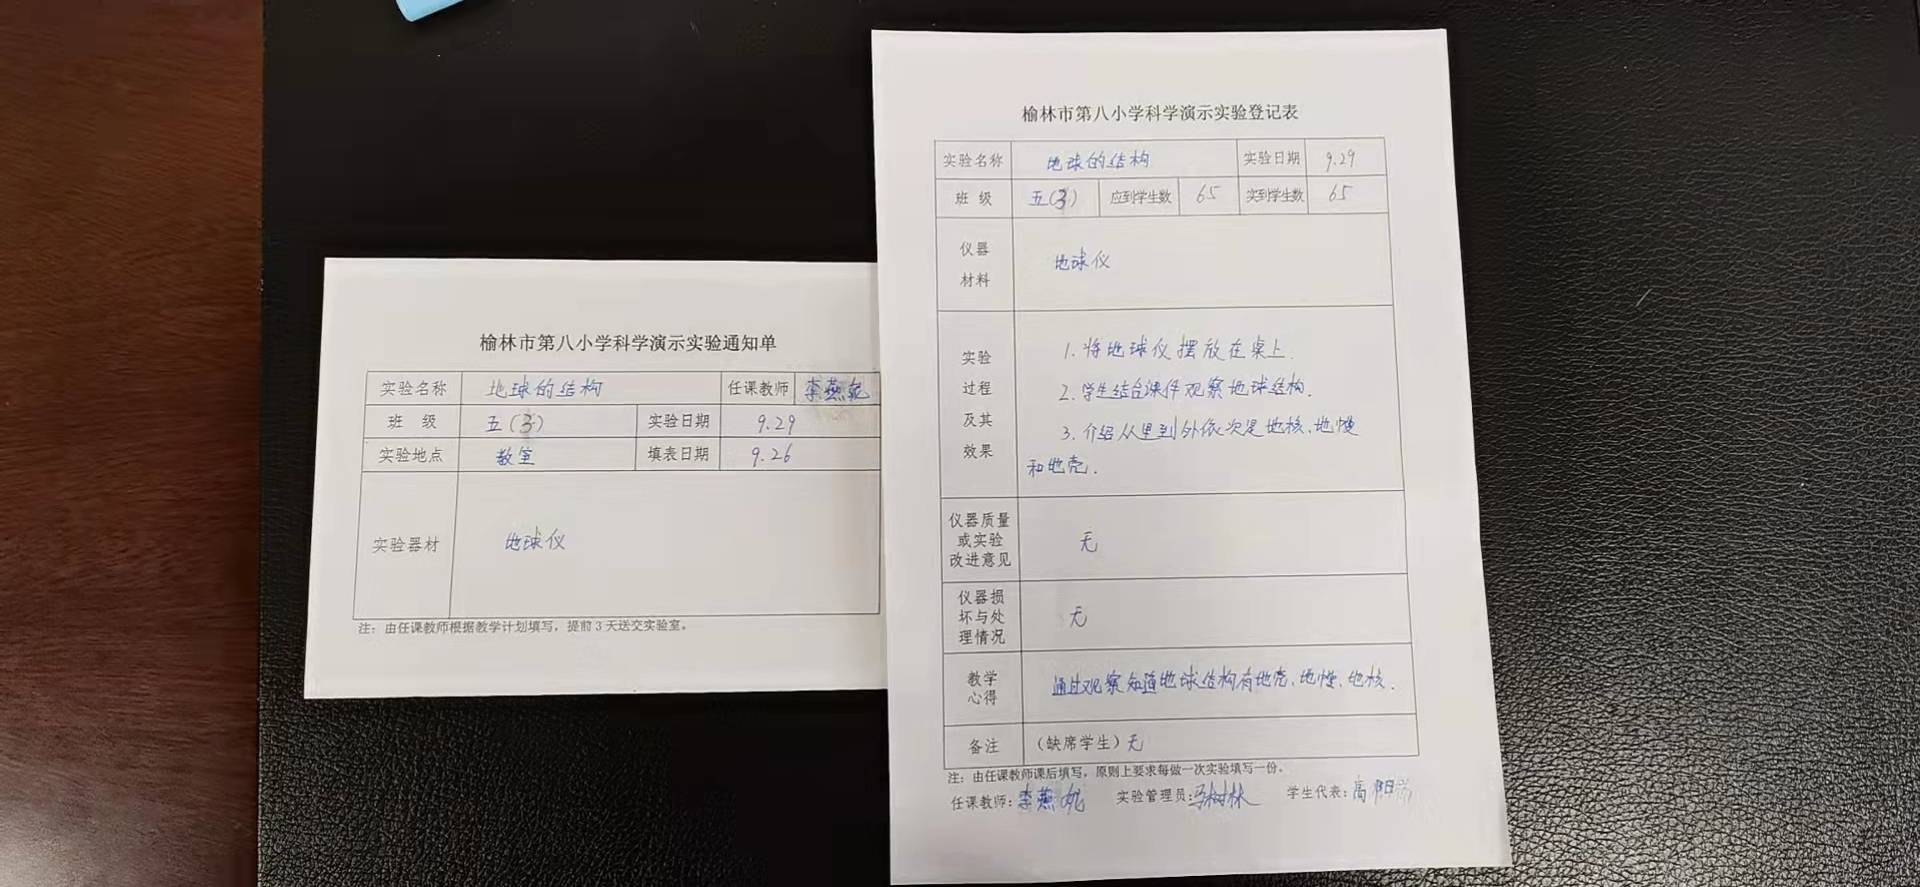 榆林市第八小学科学演示实验通知单
实验名称 地球的结构 任课教师 李燕妮
班 级 五(3) 实验日期 9.29
实验地点 教室 填表日期 9.26
实验器材 地球仪
注：由任课教师根据教学计划填写，提前3天送交实验室。
榆林市第八小学科学演示实验登记表
实验名称 地球的结构 实验日期 9.29
班 级 五(3) 应到学生数 65 实到学生数 65
仪器
材料
地球仪
实验
过程
及其
效果
1.将地球仪摆放在桌上.
2.学生结合课件观察地球结构.
3.介绍从里到外依次是地核、地幔
和地壳.
仪器质量
或实验
改进意见
无
仪器损
坏与处
理情况
无
教学
心得
通过观察知道地球结构有地壳、地幔、地核.
备注 (缺席学生)无
注：由任课教师课后填写，原则上要求每做一次实验填写一份。
任课教师：李燕妮 实验管理员：马树林 学生代表：高